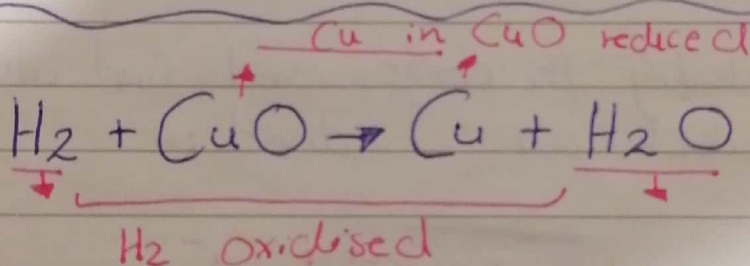 Cu in CuO reduced
H2 + CuO → Cu + H2O
H2 oxidised